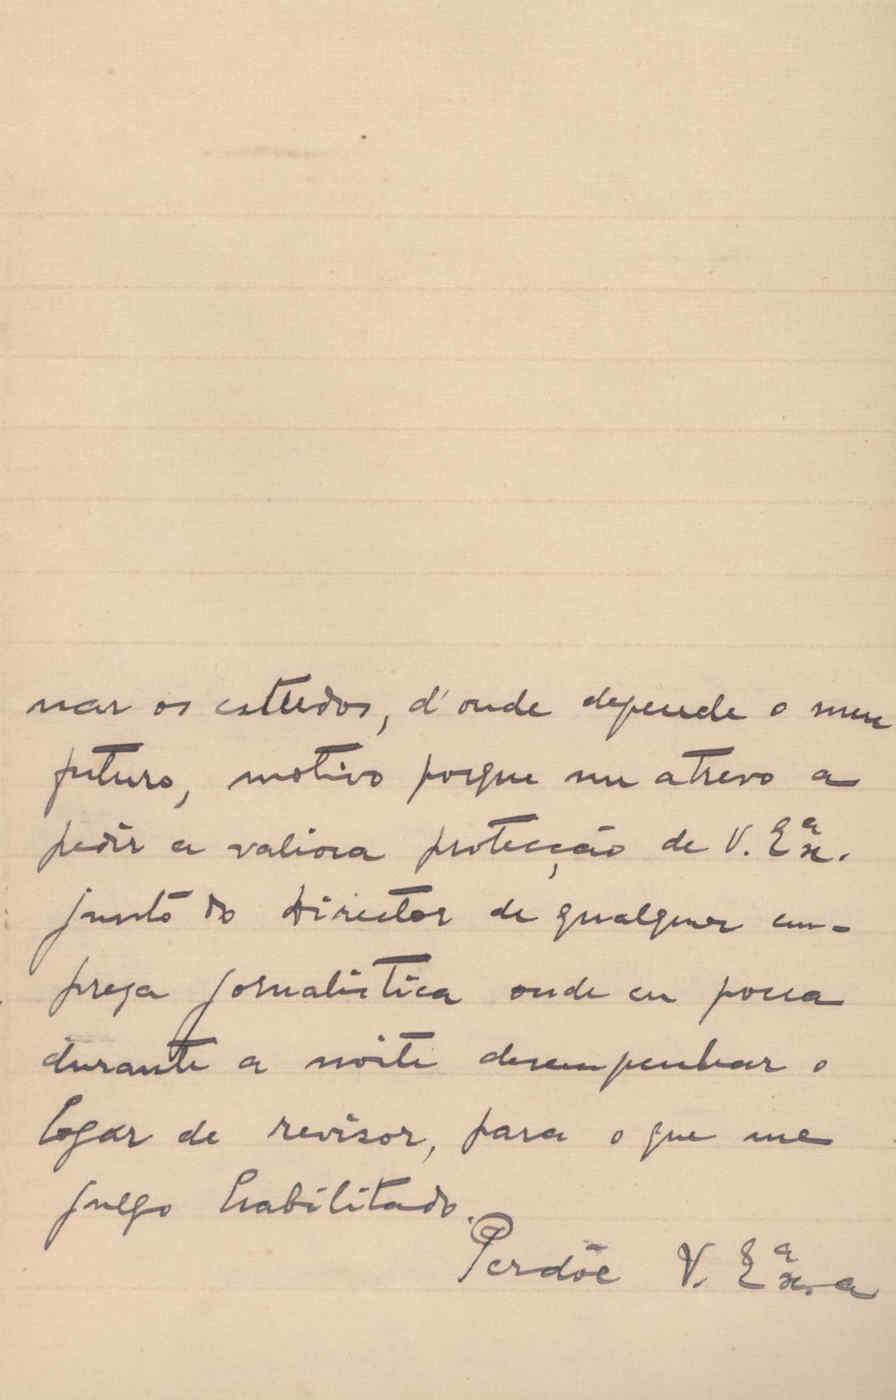 nar os estudos, d'onde depende o meu
futuro, motivo porque me atrevo a
pedir a valiosa protecção de V. Exª.
junto do Director de qualquer em-
preza jornalistica onde eu possa
durante a noite desempenhar o
logar de revisor, para o que me
julgo habilitado.
Perdõe V. Exª. a